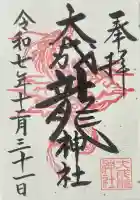 奉拝
大成龍神社
令和七年十二月三十一日